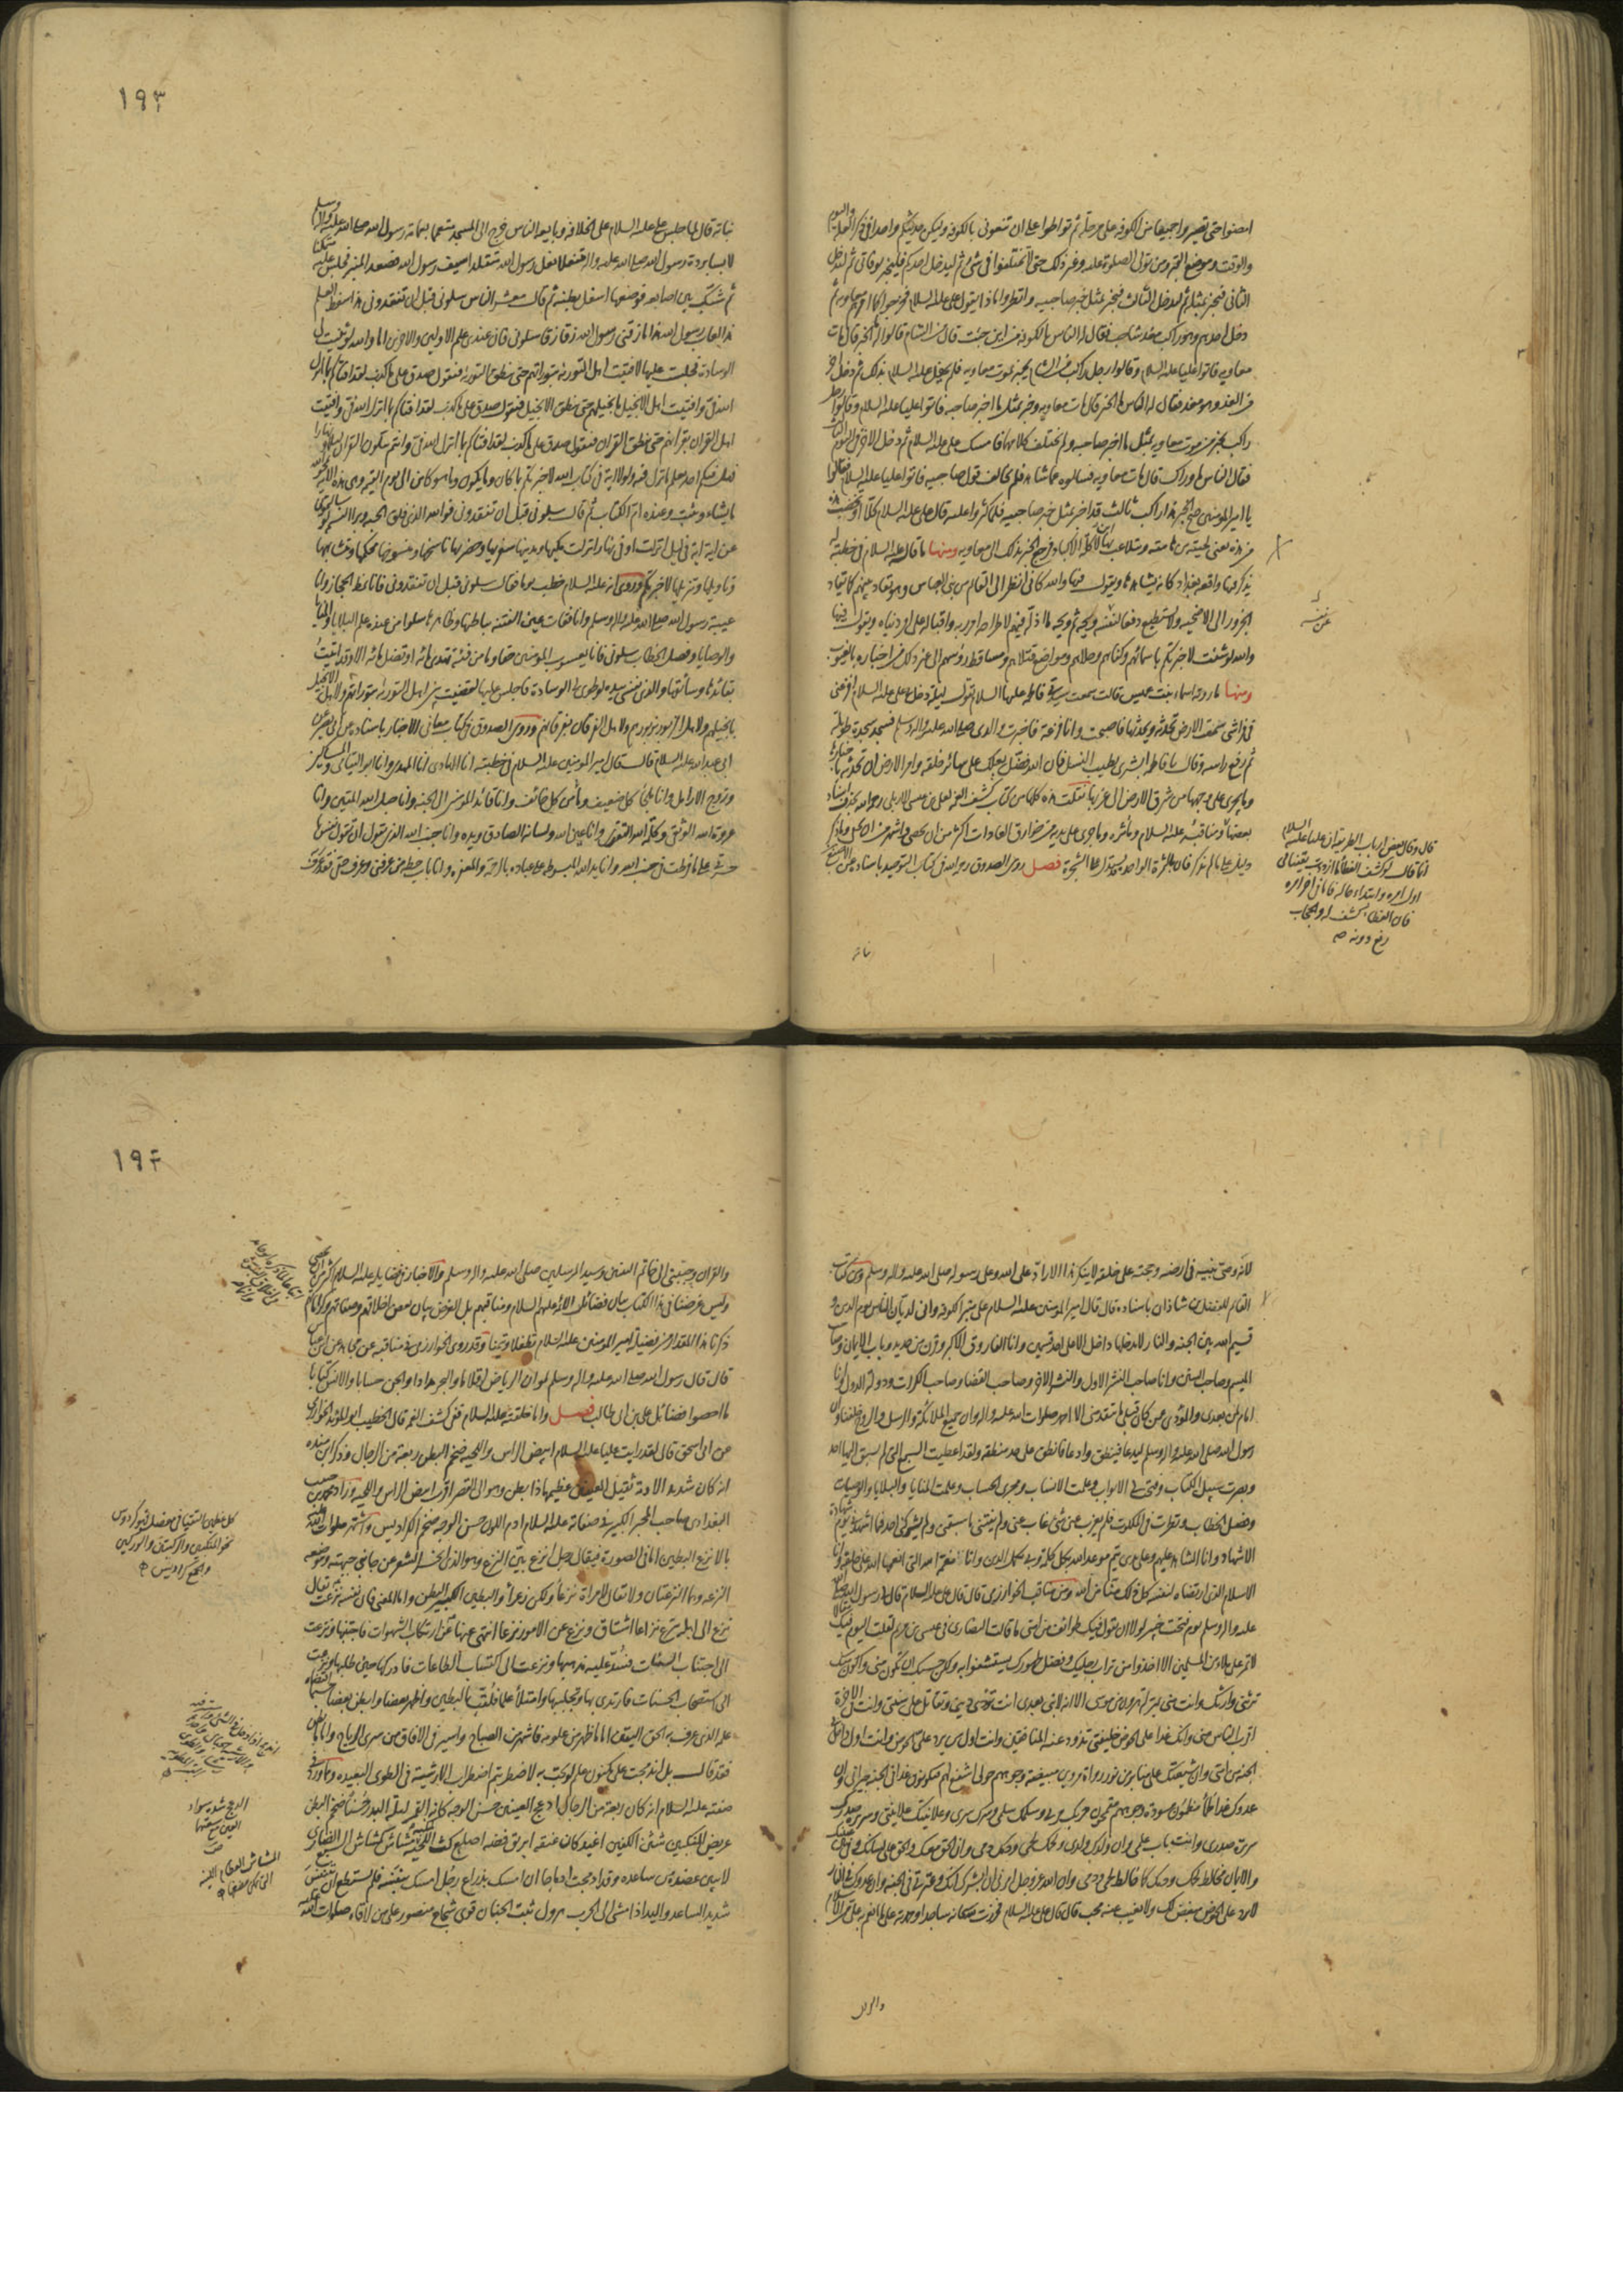 امضوا حتى تصيروا جميعا من الكوفة على مرحلة ثم تواطوا على ان تنعوني بالكوفة وليكن حديثكم واحدا في ذكر العلة واليوم
والوقت وموضع القبر ومن تولى الصلوة عليه وغير ذلك حتى لا تختلفوا في شئ ثم ليدخل احدكم فليخبر بوفاتي ثم ليدخل
الثاني فيخبر بمثله ثم ليدخل الثالث فيخبر بمثل خبر صاحبيه وانظروا ماذا يقول على عليه السلام فخرجوا كما امرهم معاوية ثم
دخل احدهم وهو راكب مغذ شاحب فقال له الناس بالكوفة من اين جئت قال من الشام قالوا له ما الخبر قال مات
معاوية فاتوا عليا عليه السلام وقالوا رجل راكب من الشام يخبر بموت معاوية فلم يحفل على عليه السلام بذلك ثم دخل آخر
من الغد وهو مغذ فقال له الناس ما الخبر قال مات معاوية وخبر بمثل ما اخبر صاحبه فاتوا عليا عليه السلام وقالوا رجل
راكب يخبر من موت معاوية بمثل ما اخبر صاحبه ولم يختلف كلامهما فامسك على عليه السلام ثم دخل الآخر في اليوم الثالث
فقال الناس ما وراك قال مات معاوية فسالوه عما شاهد فلم يخالف قول صاحبيه فاتوا عليا عليه السلام فقالوا
يا امير المؤمنين صح الخبر هذا راكب ثالث قد اخبر بمثل خبر صاحبيه فلما كثروا عليه قال على عليه السلام كلا او تخضب هذه
من هذه يعنى لحيته من هامته ويتلاعب بها ابن آكلة الاكباد فرجع الخبر بذلك الى معاوية ومنها ما قاله عليه السلام في خطبة له
يذكر فيها واقعة بغداد كانه يشاهدها ويقول فيها والله كاني انظر الى القائم من بني العباس وهو يقاد بينهم كما يقاد
الجزور الى الاضحية ولا يستطيع دفعا لنفسه ويحه ثم ويحه ما اذله فيهم لاطراحه امر ربه واقباله على امر دنياه ويقول فيها
والله لو شئت لاخبرتكم باسمائهم وكناهم وحلاهم ومواضع قتلاهم ومساقط رؤسهم الى غير ذلك من اخباره بالغيوب
ومنها ما روته اسماء بنت عميس قالت سمعت سيدتي فاطمة عليها السلام تقول ليلة دخل علي علي عليه السلام افزعني
في فراشي سمعت الارض تحدثه ويحدثها فاصبحت وانا فزعة فاخبرت والدي صلى الله عليه واله وسلم فسجد سجدة طويلة
ثم رفع راسه وقال يا فاطمة ابشري بطيب النسل فان الله فضل بعلك على سائر خلقه وامر الارض ان تحدثه باخبارها
وما يجرى على وجهها من شرق الارض الى غربها نقلت هذه كلها من كتاب كشف الغمة لعلي بن عيسى الاربلي رحمه الله بحذف اسناد
بعضها ومناقبه عليه السلام ومآثره وما جرى على يديه من خوارق العادات اكثر من ان يحصى واشهر من ان يخفى وما ذكر
دليل على ما لم يذكر فان بالثمرة الواحدة يستدل على الشجرة فصل روى الصدوق رحمه الله في كتاب التوحيد باسناده عن الاصبغ بن
نباتة
غريبه
قال وقال بعض ارباب الطريقة ان عليا عليه السلام
انما قال لو كشف الغطاء ما ازددت يقينا في
اول امره وابتداء حاله فاما في آخر امره
فان الغطاء كشف له والحجاب
رفع دونه صح
١٩٣
نباتة قال لما جلس على عليه السلام على الخلافة وبايعه الناس خرج الى المسجد متعمما بعمامة رسول الله صلى الله عليه واله وسلم
لابسا بردة رسول الله صلى الله عليه واله متنعلا نعل رسول الله متقلدا سيف رسول الله فصعد المنبر فجلس عليه متمكنا
ثم شبك بين اصابعه فوضعها اسفل بطنه ثم قال معشر الناس سلوني قبل ان تفقدوني هذا سفط العلم
هذا لعاب رسول الله هذا ما زقني رسول الله زقا زقا سلوني فان عندي علم الاولين والاخرين اما والله لو ثنيت لي
الوسادة فجلست عليها لافتيت اهل التورية بتوراتهم حتى تنطق التورية فتقول صدق علي ما كذب لقد افتاكم بما انزل
الله في وافتيت اهل الانجيل بانجيلهم حتى ينطق الانجيل فيقول صدق علي ما كذب لقد افتاكم بما انزل الله في وافتيت
اهل القران بقرانهم حتى ينطق القران فيقول صدق علي ما كذب لقد افتاكم بما انزل الله في وانتم تتلون القران ليلا ونهارا
فهل فيكم احد يعلم ما نزل فيه ولولا اية في كتاب الله لاخبرتكم بما كان وما يكون وما هو كائن الى يوم القيمة وهي هذه الاية يمحو الله
ما يشاء ويثبت وعنده ام الكتاب ثم قال سلوني قبل ان تفقدوني فوالله الذي فلق الحبة وبرا النسمة لو سالتموني
عن اية اية في ليل انزلت او في نهار انزلت مكيها ومدنيها سفريها وحضريها ناسخها ومنسوخها محكمها ومتشابهها
وتاويلها وتنزيلها لاخبرتكم وروى انه عليه السلام خطب يوما فقال سلوني قبل ان تفقدوني فانا نمط الحجاز وانا
عيبة رسول الله صلى الله عليه واله وسلم وانا فقات عين الفتنة بباطنها وظاهرها سلوا من عنده علم البلايا والمنايا
والوصايا وفصل الخطاب سلوني فانا يعسوب المؤمنين حقا وما من فئة تهدي مائة او تضل مائة الا وقد اتيت
بقائدها وسائقها والذي نفسي بيده لو طوى لي الوسادة فاجلس عليها لقضيت بين اهل التورية بتوراتهم ولاهل الانجيل
بانجيلهم ولاهل الزبور بزبورهم ولاهل الفرقان بفرقانهم وروى الصدوق في كتاب معاني الاخبار باسناده عن ابي بصير عن
ابي عبد الله عليه السلام قال قال امير المؤمنين عليه السلام في خطبته انا الهادي انا المهتدي وانا ابو اليتامى والمساكين
وزوج الارامل وانا ملجأ كل ضعيف ومأمن كل خائف وانا قائد المؤمنين الى الجنة وانا حبل الله المتين وانا
عروة الله الوثقى وكلمة التقوى وانا عين الله ولسانه الصادق ويده وانا جنب الله الذي يقول ان تقول نفس يا
حسرتى على ما فرطت في جنب الله وانا يد الله المبسوطة على عباده بالرحمة والمغفرة وانا باب حطة من عرفني وعرف حقي فقد عرف ربه
لاني وصي نبيه في ارضه وحجته على خلقه لا ينكر هذا الا راد على الله وعلى رسوله صلى الله عليه واله وسلم وفي كتاب
القائم للفضل بن شاذان باسناده قال قال امير المؤمنين عليه السلام على منبر الكوفة واني لديان الناس يوم الدين و
قسيم الله بين الجنة والنار لا يدخلها داخل الا على احد قسمين وانا الفاروق الاكبر وقرن من حديد وباب الايمان وصاحب
الميسم وصاحب السنين وانا صاحب النشر الاول والنشر الاخر وصاحب القضا وصاحب الكرات ودولة الدول وانا
امام لمن بعدي والمؤدي عمن كان قبلي ما يتقدمني الا احمد صلوات الله عليه واله وان جميع الملائكة والرسل والروح خلفنا وان
رسول الله صلى الله عليه واله وسلم ليدعا فينطق وادعا فانطق على حد منطقه ولقد اعطيت السبع التي لم يسبق اليها احد
وبصرت سبيل الكتاب وفتحت لي الابواب وعلمت الانساب ومجرى الحساب وعلمت المنايا والبلايا والوصيات
وفصل الخطاب ونظرت في الملكوت فلم يعزب عني شئ غاب عني ولم يفتني ما سبقني ولم يشركني احد فيما اشهدني يوم شهادة
الاشهاد وانا الشاهد عليهم وعلى يدي يتم موعد الله وتكمل كلمته وبي يكمل الدين وانا النعمة التي انعمها الله على خلقه وانا
الاسلام الذي ارتضاه لنفسه كل ذلك منا من الله ومن مناقب الخوارزمي قال قال علي عليه السلام قال لي رسول الله صلى الله
عليه واله وسلم يوم فتحت خيبر لولا ان يقول فيك طوائف من امتي ما قالت النصارى في عيسى بن مريم لقلت اليوم فيك مقالا
لا تمر على ملاء من المسلمين الا اخذوا من تراب رجليك وفضل طهورك يستشفوا به ولكن حسبك ان تكون مني وانا منك
ترثني وارثك وانت مني بمنزلة هرون من موسى الا انه لا نبي بعدي انت تؤدي ديني وتقاتل على سنتي وانت في الاخرة
اقرب الناس مني وانك غدا على الحوض خليفتي تذود عنه المنافقين وانت اول من يرد علي الحوض وانت اول داخل
الجنة من امتي وان شيعتك على منابر من نور رواة مرويين مبيضة وجوههم حولي اشفع لهم فيكونون غدا في الجنة جيراني وان
عدوك غدا ظماء مظمئون مسودة وجوههم مقمحون حربك حربي وسلمك سلمي وسرك سري وعلانيتك علانيتي وسريرة صدرك
سريرة صدري وانت باب علمي وان ولدك ولدي ولحمك لحمي ودمك دمي وان الحق معك والحق على لسانك وفي قلبك
والايمان مخالط لحمك ودمك كما خالط لحمي ودمي وان الله عز وجل امرني ان ابشرك انك وعترتك في الجنة وان عدوك في النار
لا يرد على الحوض مبغض لك ولا يغيب عنه محب قال قال علي عليه السلام فخررت لله سبحانه ساجدا وحمدته على ما انعم به علي من الاسلام
والقران
١٩٤
والقران وحببني الى خاتم النبيين وسيد المرسلين صلى الله عليه واله وسلم والاخبار في فضايله عليه السلام اكثر من ان تحصى
وليس غرضنا في هذا الكتاب بيان فضائل الائمة عليهم السلام ومناقبهم بل الغرض بيان بعض اخلاقهم وصفاتهم وكراماتهم
ذكرنا هذا المقدار من فضيلة امير المؤمنين عليه السلام تطفلا وتيمنا وقد روى الخوارزمي في مناقبه عن مجاهد عن ابن عباس
قال قال رسول الله صلى الله عليه واله وسلم لو ان الرياض اقلام والبحر مداد والجن حساب والانس كتاب
ما احصوا فضائل علي بن ابي طالب فصل واما خلقته عليه السلام ففي كشف الغمة قال الخطيب ابو المؤيد الخوارزمي
عن ابي اسحق قال لقد رايت عليا عليه السلام ابيض الراس واللحية ضخم البطن ربعة من الرجال وذكر ابن منده
انه كان شديد الادمة ثقيل العينين عظيمهما ذا بطن وهو الى القصر اقرب ابيض الراس واللحية وزاد محمد بن حبيب
البغدادي صاحب المحبر الكبير في صفاته عليه السلام ادم اللون حسن الوجه ضخم الكراديس واشتهر صلوات الله عليه
بالانزع البطين اما في الصورة فيقال رجل انزع بين النزع وهو الذي انحسر الشعر عن جانبي جبهته وموضعه
النزعة وهما النزعتان ولا يقال لامراة نزعاء ولكن زعراء والبطين الكبير البطن واما المعنى فان نفسه نزعت يقال
نزع الى اهله ينزع نزاعا اشتاق ونزع عن الامور نزوعا انتهى عنها عن ارتكاب الشهوات فاجتنبها ونزعت
الى اجتناب السيئات فسد عليه مذهبها ونزعت الى اكتساب الطاعات فادركها حين طلبها ونزعت
الى استصحاب الحسنات فارتدى بها وتجلببها وامتلأ علما فلقب بالبطين واظهر بعضا وابطن بعضا حسبما اقتضاه
علمه الذي عرف به الحق اليقين اما ما ظهر من علومه فاشهر من الصباح واسير في الافاق من سرى الرياح واما ما بطن
فقد قال بل اندمجت على مكنون علم لو بحت به لاضطربتم اضطراب الارشية في الطوى البعيدة ومما ورد في
صفته عليه السلام انه كان ربعة من الرجال ادعج العينين حسن الوجه كانه القمر ليلة البدر حسنا ضخم البطن
عريض المنكبين شثن الكفين اغيد كان عنقه ابريق فضة اصلع كث اللحية لمنكبيه مشاش كمشاش السبع الضاري
لا يبين عضده من ساعده وقد ادمجت ادماجا ان امسك بذراع رجل امسك بنفسه فلم يستطع ان يتنفس
شديد الساعد واليد اذا مشى الى الحرب هرول ثبت الجنان قوي شجاع منصور على من لاقاه صلوات الله عليه
كل عظمين التقيا في مفصل فهو كردوس
نحو المنكبين والركبتين والوركين
والجمع كراديس
الدعج شدة سواد
العين مع سعتها